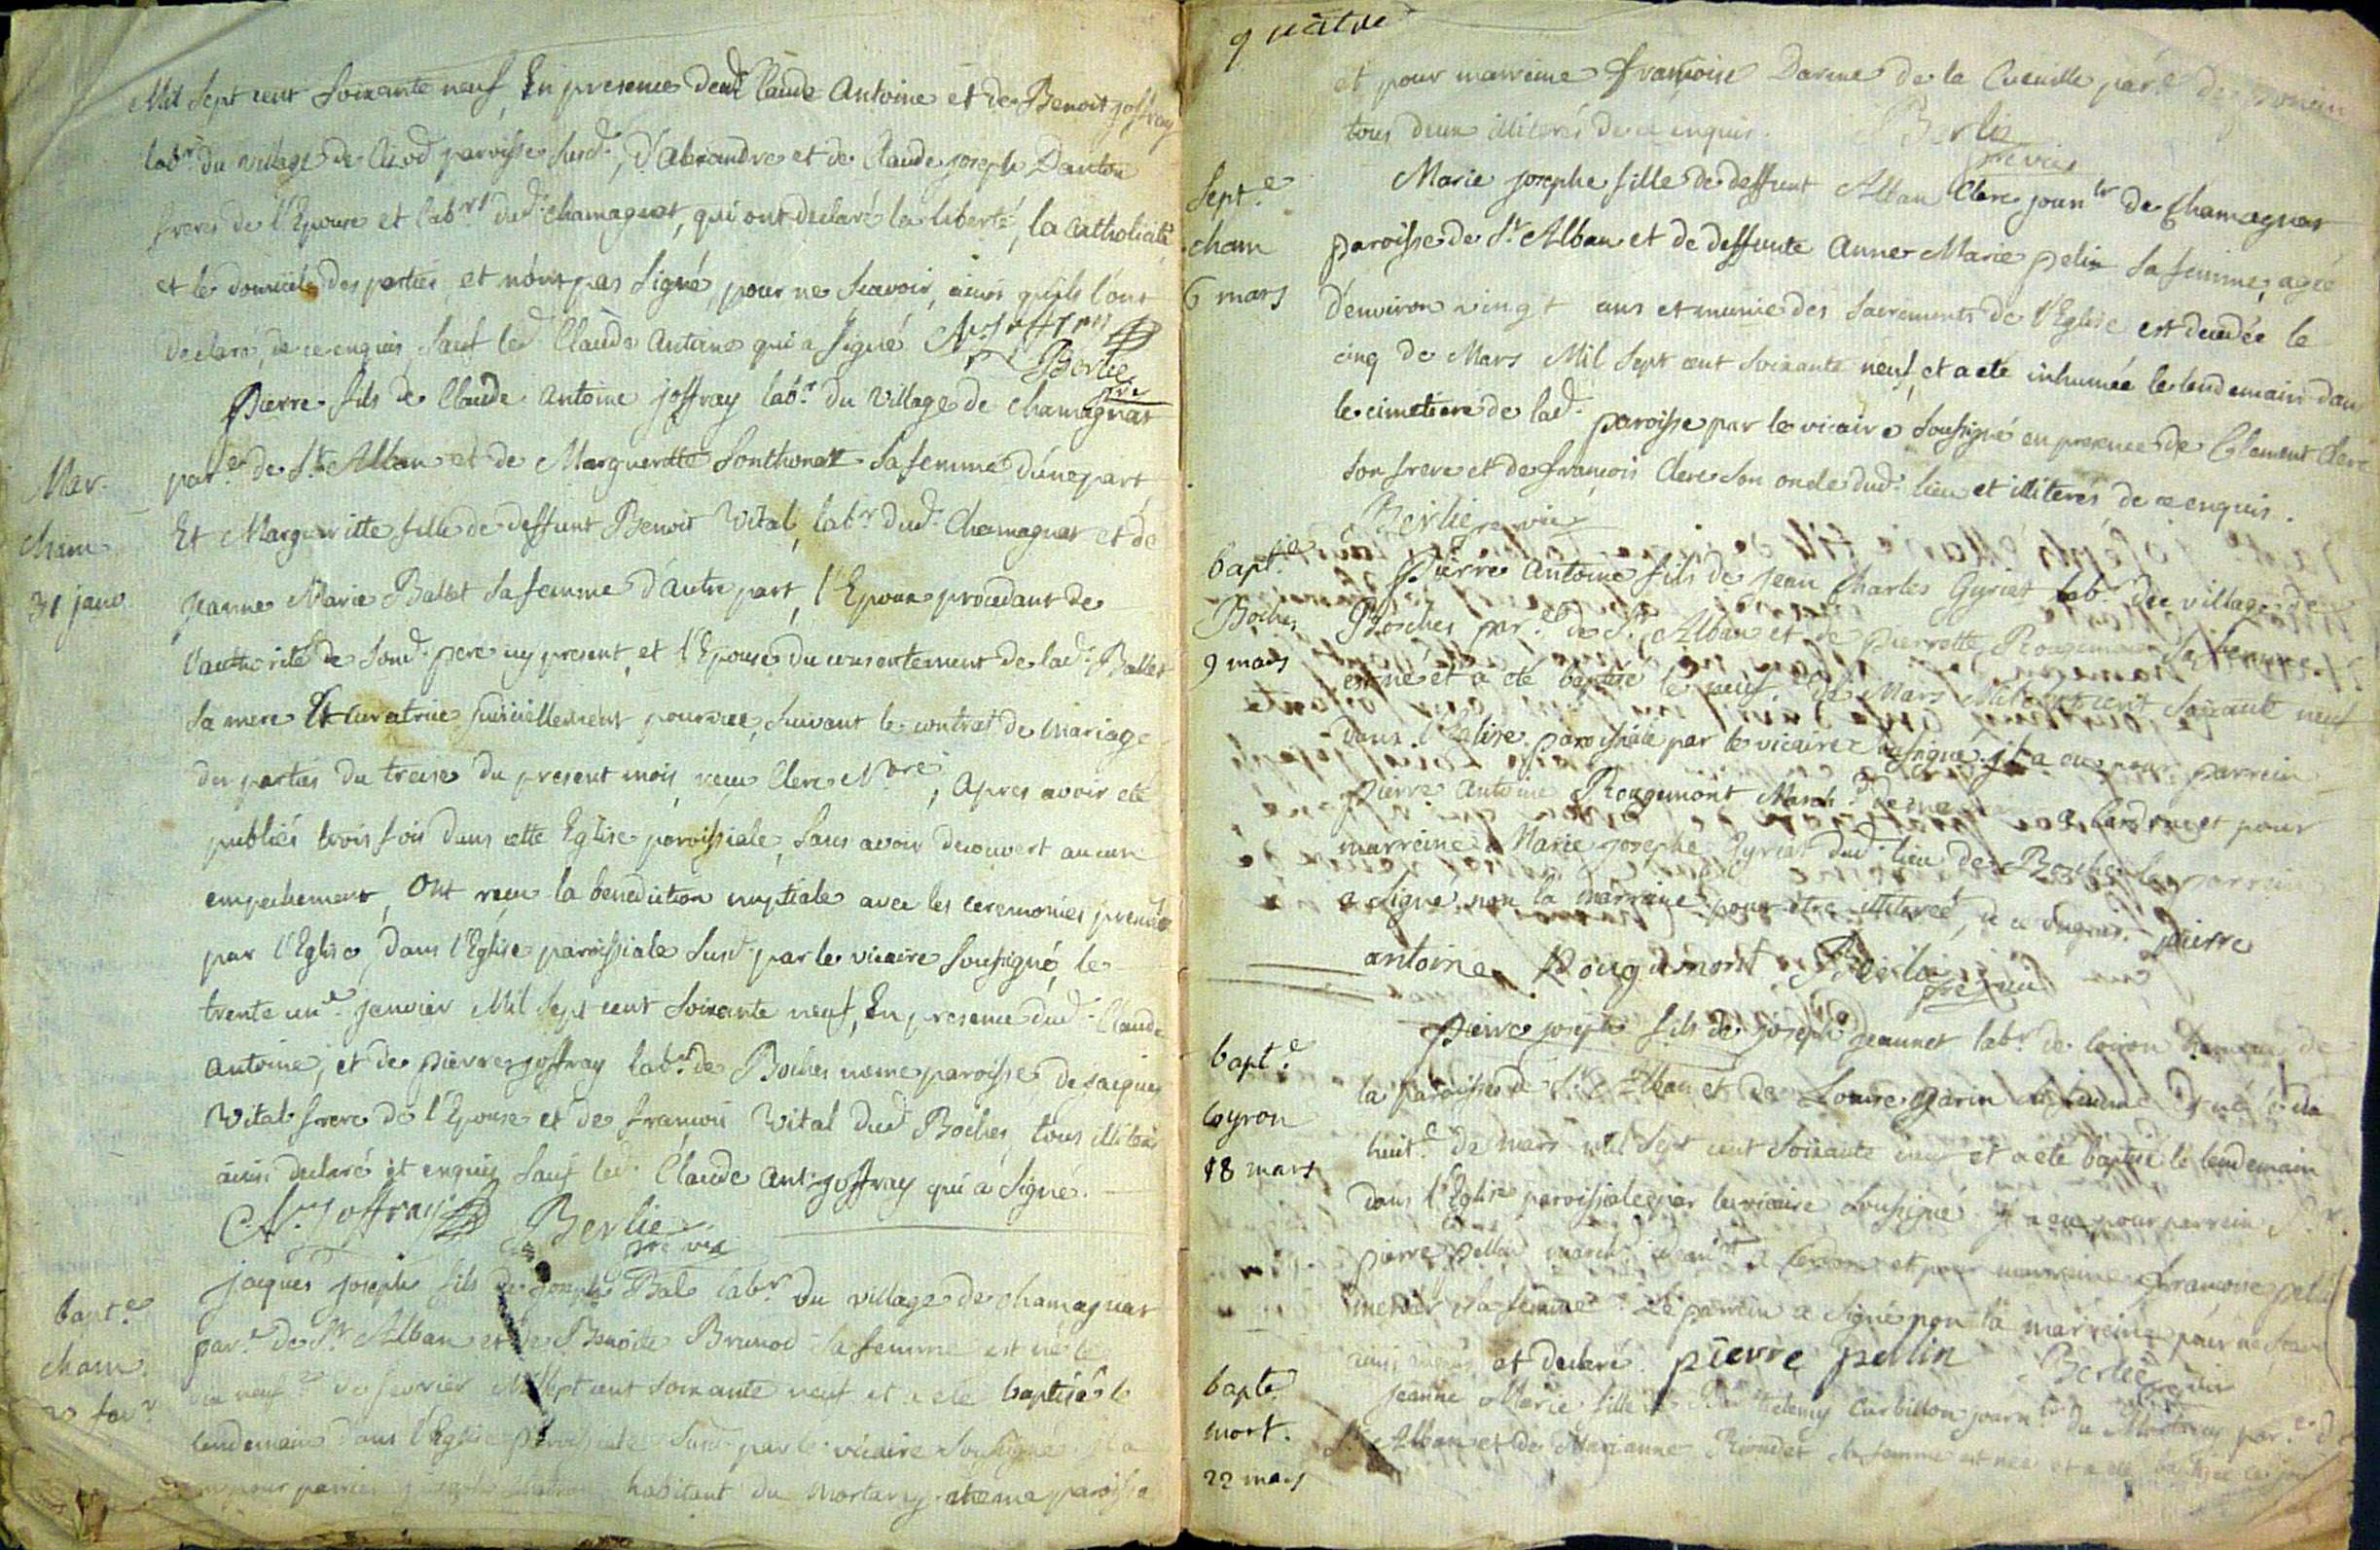 Mil Sept cent Soixante neuf, En presence dud. Claude Antoine et de Benoit joffray
labr. du village de paroisse susd., d'Alexandre et de Claude joseph Danton
freres de l'Epouse et labrs. dud. chamagnat, qui ont declaré la liberté, la catholicité
et le domicile des parties, et n'ont pas Signé, pour ne scavoir, ainsi qu'ils l'ont
declaré, de ce enquis, Sauf led. Claude Antoine qui a signé Joffray
Berlie
pre
Mar.
cham
31 janv
Pierre fils de Claude Antoine joffray labr. du village de chamagnat
par.e de St Alban et de Margueritte Sonthonat sa femme d'une part,
Et Margueritte fille de deffunt Benoit Vital, labr. dud. Chamagnat et de
Jeanne Marie Ballet sa femme d'autre part, l'Epoux procedant de
l'authorité de sond. pere icy present, et l'Epouse du consentement de lad. Ballet
sa mere Et curatrice pourvuee, suivant le contrat de mariage
des parties du treise du present mois, reçu Clerc Nore., Apres avoir été
publiés trois fois dans cette Eglise paroissiale, sans avoir decouvert aucun
empechement, Ont reçu la benediction nuptiale avec les ceremonies
par l'Eglise, dans l'Eglise paroissiale susd. par le vicaire soussigné, le
trente un.e janvier Mil Sept cent Soixante neuf, En presence dud. Claude
Antoine, et de pierre joffray labr. de Boches meme paroisse, de jacques
Vital frere de l'Epouse et de françois Vital dud. Boches, tous
ainsi declaré et enquis, sauf led. Claude ant. joffray qui a Signé.
C. A. Joffray Berlie
pre vic
bapt.e
cham.
20 fevr
jacques joseph fils de joseph Bal labr. du village de chamagnat
par.e de St Alban et de Benoite Brunod sa femme est né le
dix neuf.e de fevrier Mil Sept cent soixante neuf et a eté baptisé le
lendemain dans l'Eglise paroissiale susd. par le vicaire soussigné il a
eu pour parrein joseph habitant du mortarey meme paroisse
quatre
et pour marreine françoise Darme de la Cueille par.e de
tous deux illiterés de ce enquis. Berlie
pre vic
Sept.e
cham
6 mars
Marie josephe fille de deffunt Alban Clerc journ.lr de Chamagnat
paroisse de St. Alban et de deffunte Anne Marie pelin sa femme, agée
d'environ vingt ans et munie des Sacrements de l'Eglise est decedée le
cinq de Mars Mil Sept cent soixante neuf, et a eté inhumée le lendemain dans
le cimetiere de lad. paroisse par le vicaire soussigné en presence de Clement Clerc
son frere et de françois Clerc son oncle dud. lieu et illiterés de ce enquis.
Berlie pre vic
bapt.e
Boches
9 mars
Pierre Antoine fils de jean Charles Gyriat labr. du village de
Boches par.e de St. Alban et de pierrette Rougemont sa femme
est né et a eté baptisé le neuf. de Mars Mil Sept cent soixante neuf
dans l'Eglise paroissiale par le vicaire soussigné. il a eu pour parrein
pierre Antoine Rougemont March.d a Cerdon et pour
marreine Marie josephe Gyriat dud. lieu de Boches le parrein
a signé, non la marreine pour etre illiterée, de ce enquis. pierre
antoine Rougemont Berlie
pre vic
bapt.e
coyron
18 mars
pierre joseph fils de joseph jeannet labr. de coiron hameau de
la paroisse de St. Alban et de Louise garin sa femme est né le dix
huit.e de mars mil Sept cent soixante neuf et a eté baptisé le lendemain
dans l'Eglise paroissiale par le vicaire soussigné. Il a eu pour parrein
pierre pellin march.d a Cerdon et pour marreine françoise
mercier sa femme. Le parrein a signé non la marreine pour ne scavoir
ainsi et declaré. pierre pellin Berlie
pre vic
bapt.e
mort.
22 mars
jeanne Marie fille de Barthelemy Curbillon journ.lr du Mortarey par.e de
St. Alban et de Marianne Riondet sa femme est née et a eté baptisée le